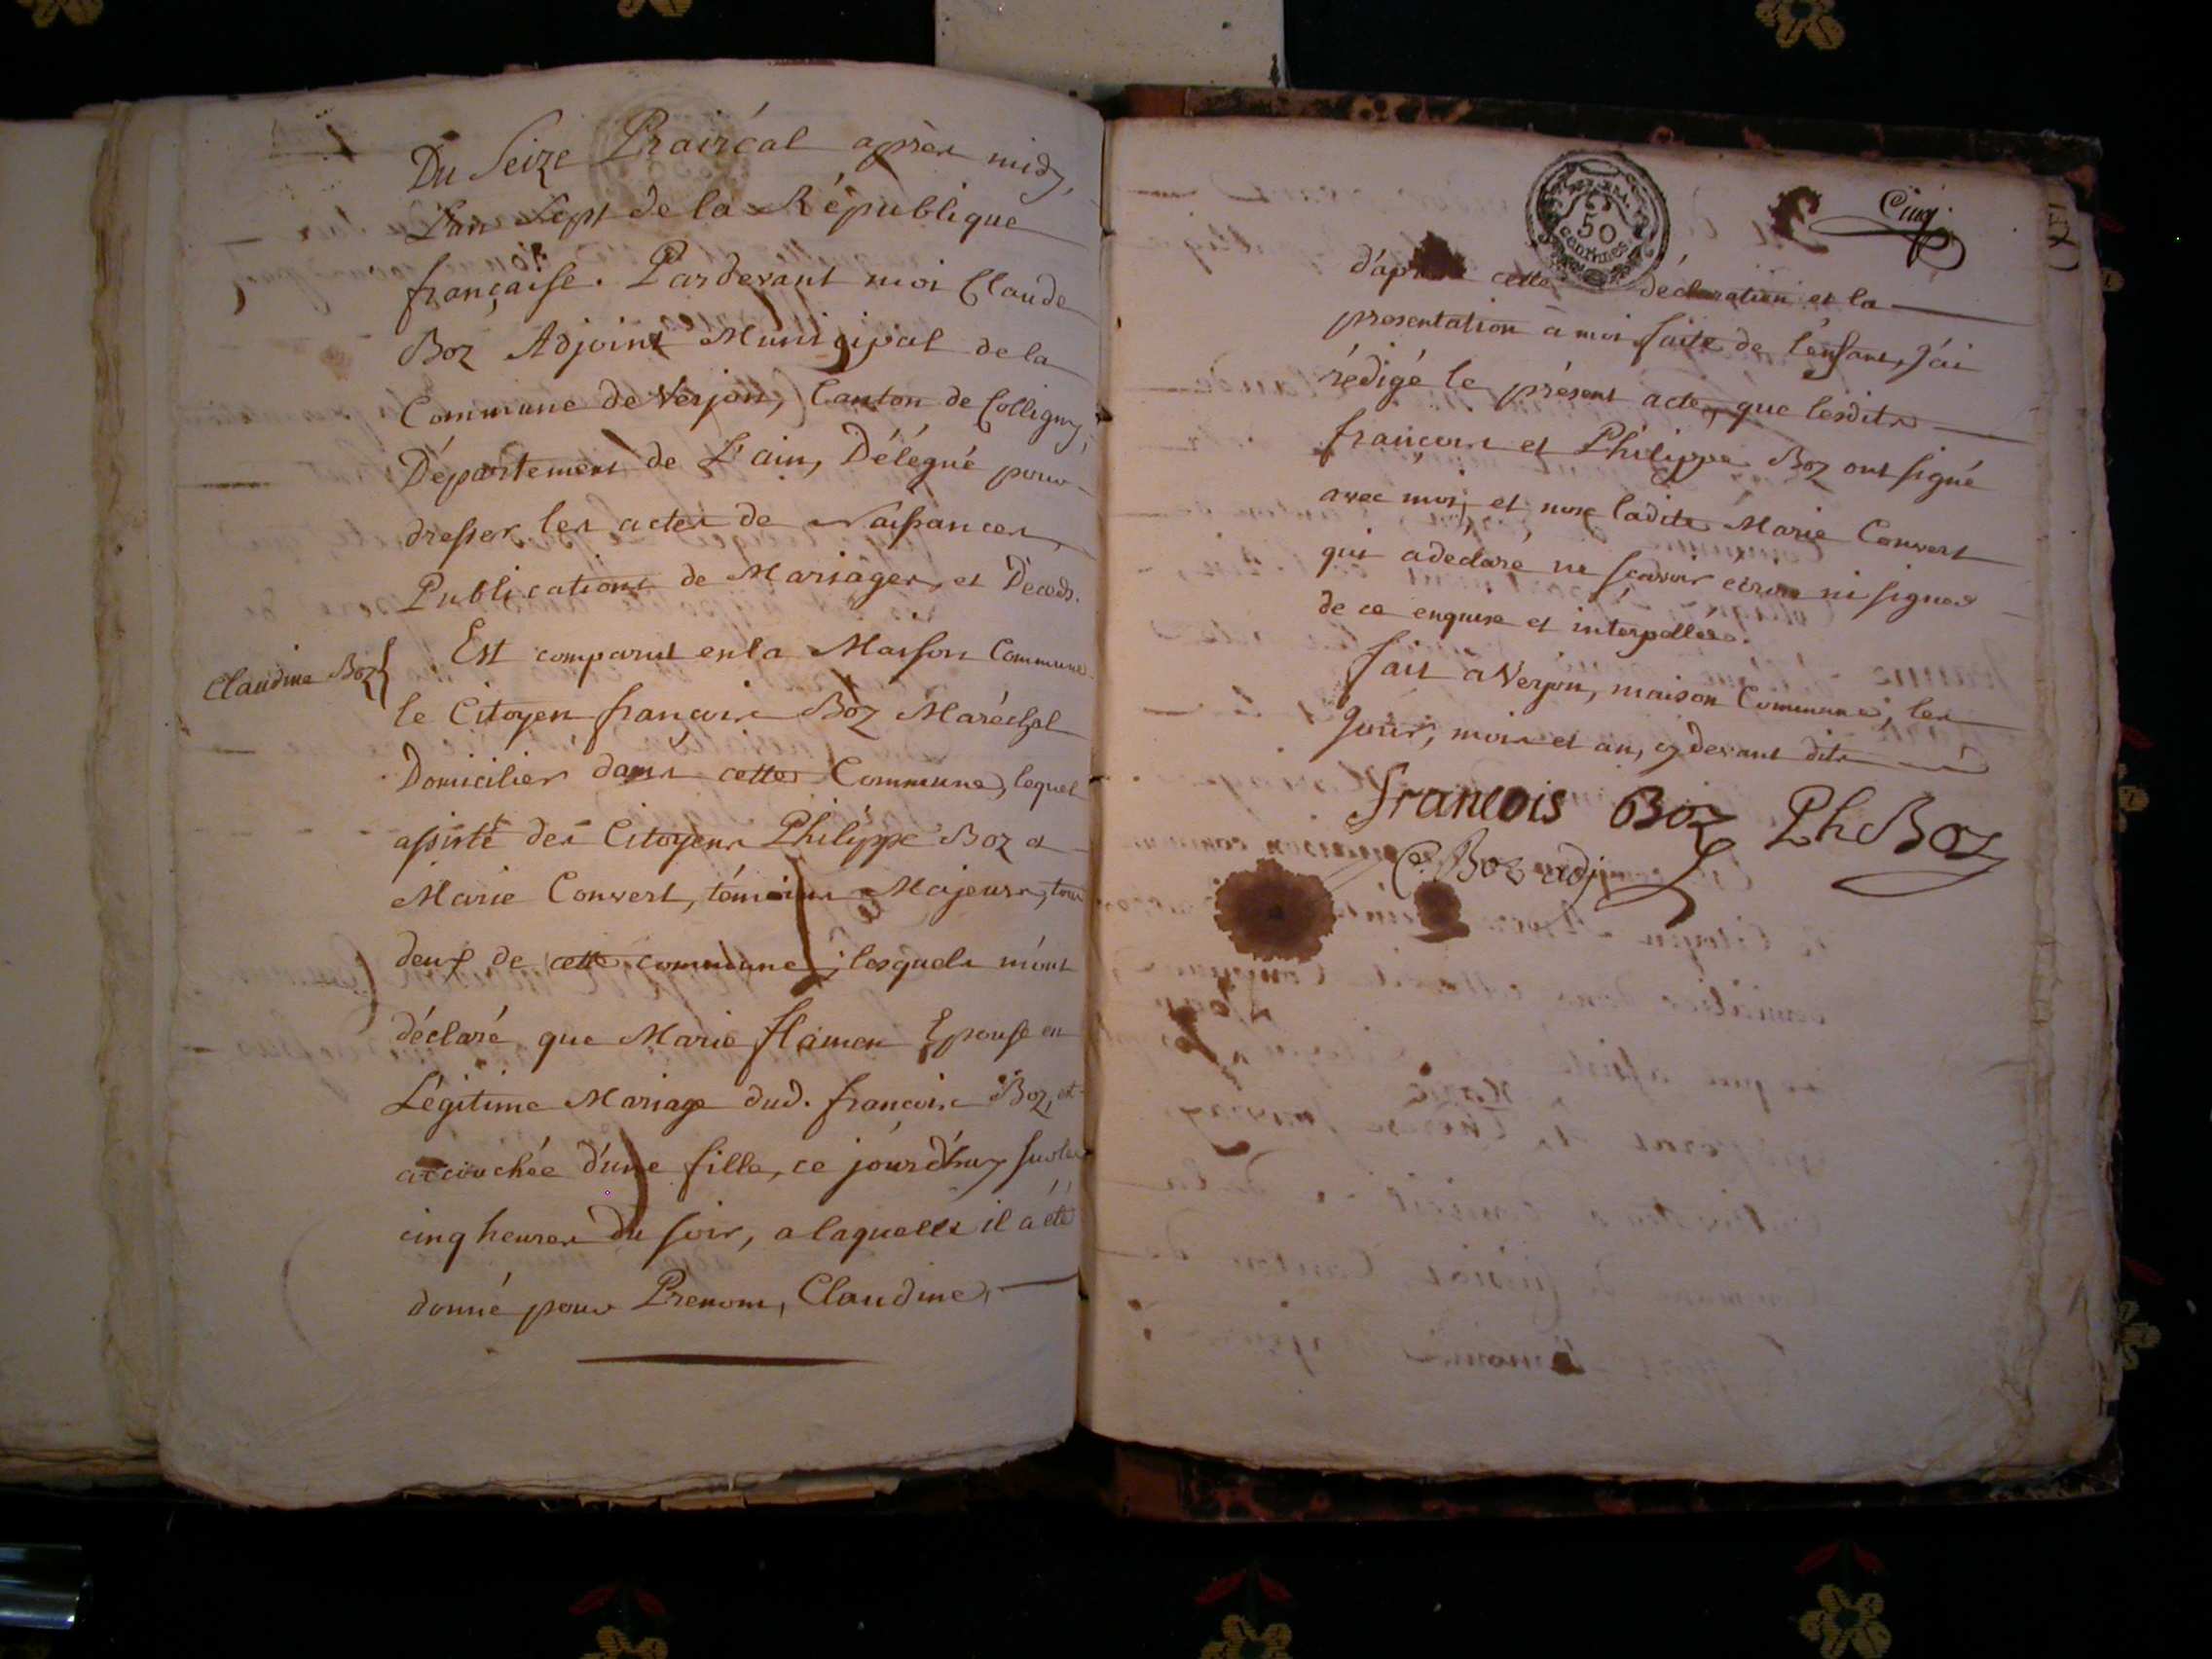 Du Seize Prairéal après midy,
L'an Sept de la République
française. Pardevant moi Claude
Boz Adjoint Municipal de la
Commune de Verjon, Canton de Colligny,
Département de L'ain, Délégué pour
dresser les actes de Naissances,
Publications de Mariages, et Décéds.
Claudine Boz
Est comparut en la Maison Commune
le Citoyen françois Boz Maréchal
Domicilier dans cette Commune, lequel
assisté des Citoyens Philippe Boz et
Marie Convert, témoins Majeurs, tous
deux de cette commune; lesquels m'ont
déclaré que Marie flamen Epouse en
Légitime Mariage dud. françois Boz, est
accouchée d'une fille, ce jourd'huy sur les
cinq heures du soir, a laquelle il a été
donné pour Prenom, Claudine,
Cinq
50
centimes
d'après cette déclaration et la
presentation à moi faite de l'enfant, j'ai
rédigé le présent acte, que lesdits
françois et Philippe Boz ont signé
avec moi, et non ladite Marie Convert
qui a declaré ne sçavoir écrire ni signer
de ce enquise et interpellée.
fait a Verjon, maison Commune, les
Jour, mois et an, cy devant dits
francois Boz Ph Boz
C. Boz adj